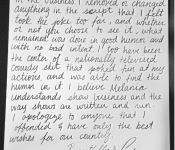 in the business I removed or changed
anything in the script that I felt
took the joke too far, and whether
or not you choose to see it, what
remained was done in good humor and
with no bad intent! I too have been
the center of a nationally televised
comedy skit that poked fun at my
actions, and was able to find the
humor in it. I believe Melania
understands show business and the
way shows are written and run.
I apologize to anyone that I
offended & have only the best
wishes for our country.